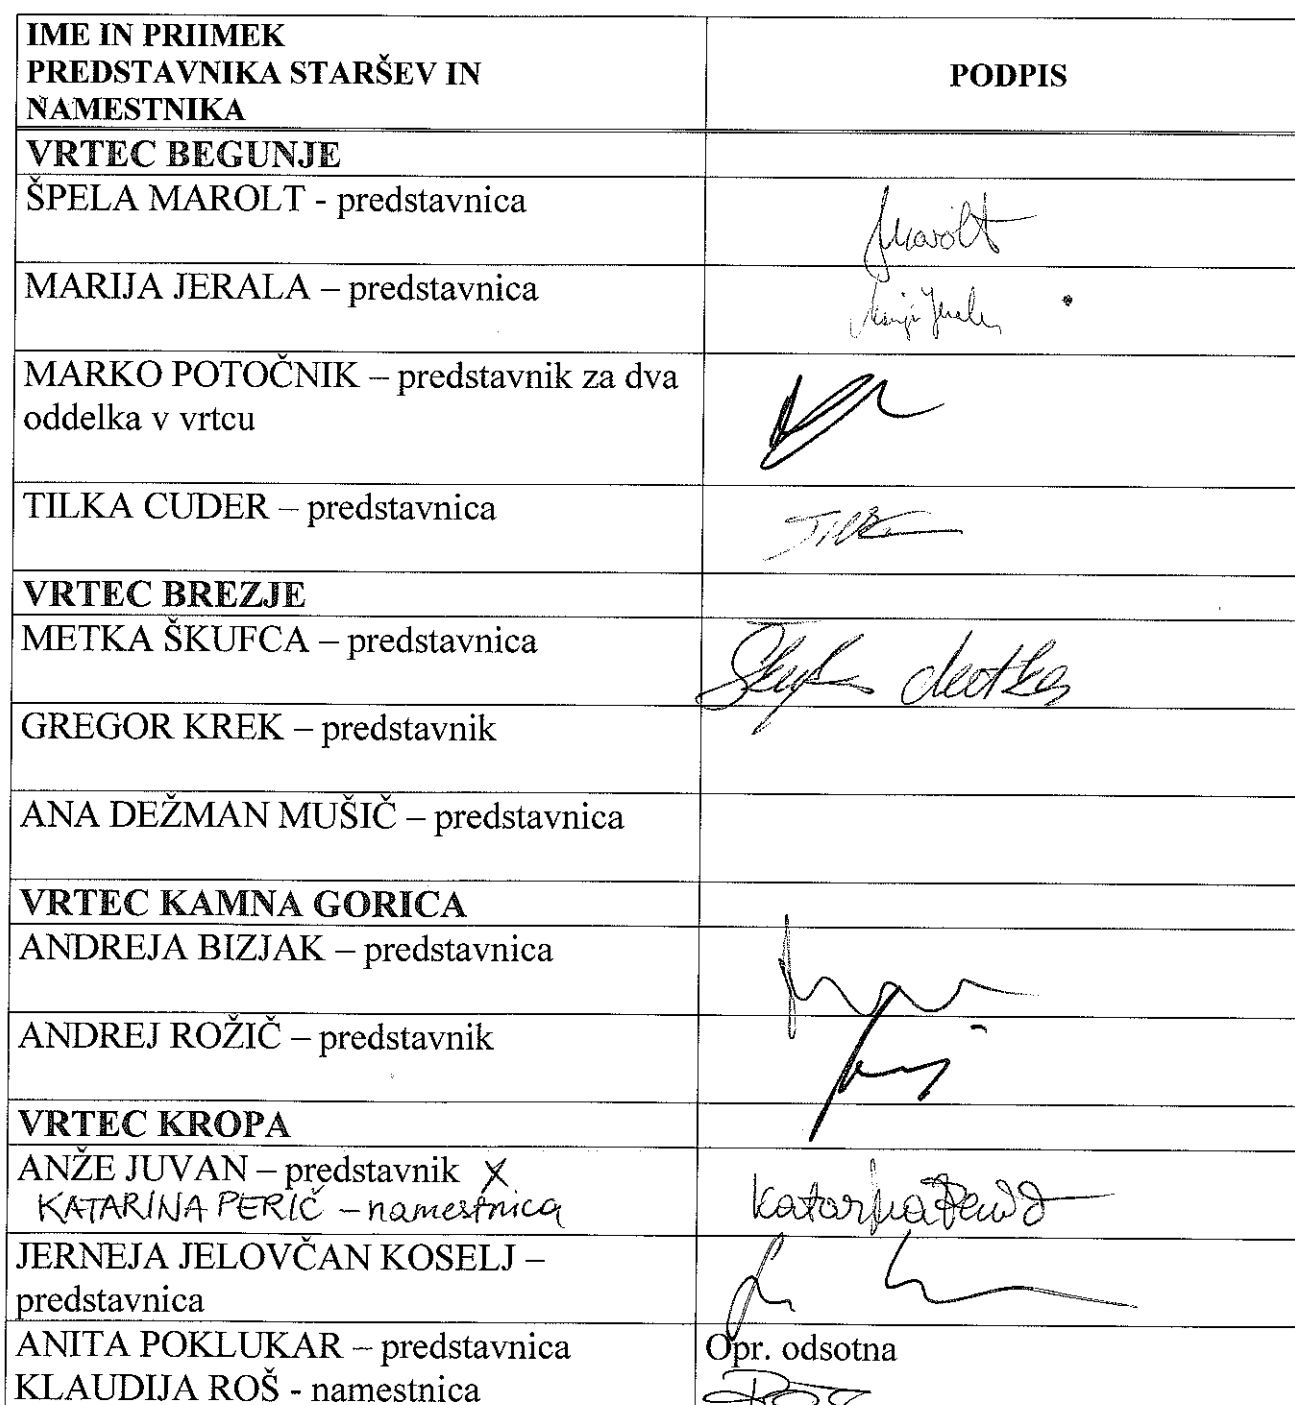 IME IN PRIIMEK
PREDSTAVNIKA STARŠEV IN
NAMESTNIKA
PODPIS
VRTEC BEGUNJE
ŠPELA MAROLT - predstavnica
Marolt
MARIJA JERALA – predstavnica
MARKO POTOČNIK – predstavnik za dva
oddelka v vrtcu
TILKA CUDER – predstavnica
VRTEC BREZJE
METKA ŠKUFCA – predstavnica
Metka
GREGOR KREK – predstavnik
ANA DEŽMAN MUŠIČ – predstavnica
VRTEC KAMNA GORICA
ANDREJA BIZJAK – predstavnica
ANDREJ ROŽIČ – predstavnik
VRTEC KROPA
ANŽE JUVAN – predstavnik X
KATARINA PERIČ – namestnica
Katarina
JERNEJA JELOVČAN KOSELJ –
predstavnica
ANITA POKLUKAR – predstavnica
Opr. odsotna
KLAUDIJA ROŠ - namestnica